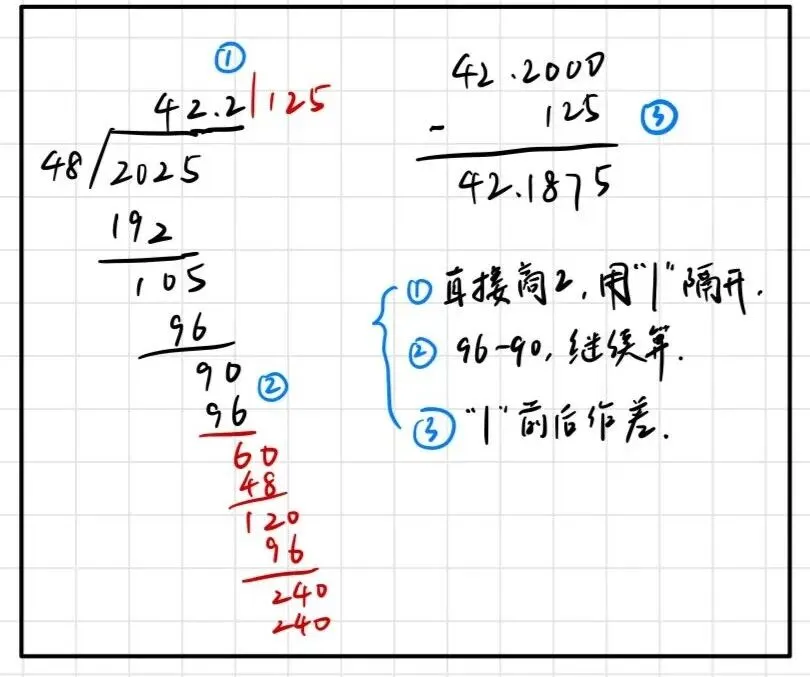 ①
42.2|125
48/2025
192
105
96
90 ②
96
60
48
120
96
240
240
42.2000
- 125 ③
42.1875
① 直接商2,用"|"隔开.
② 96-90,继续算.
③ "|"前后作差.